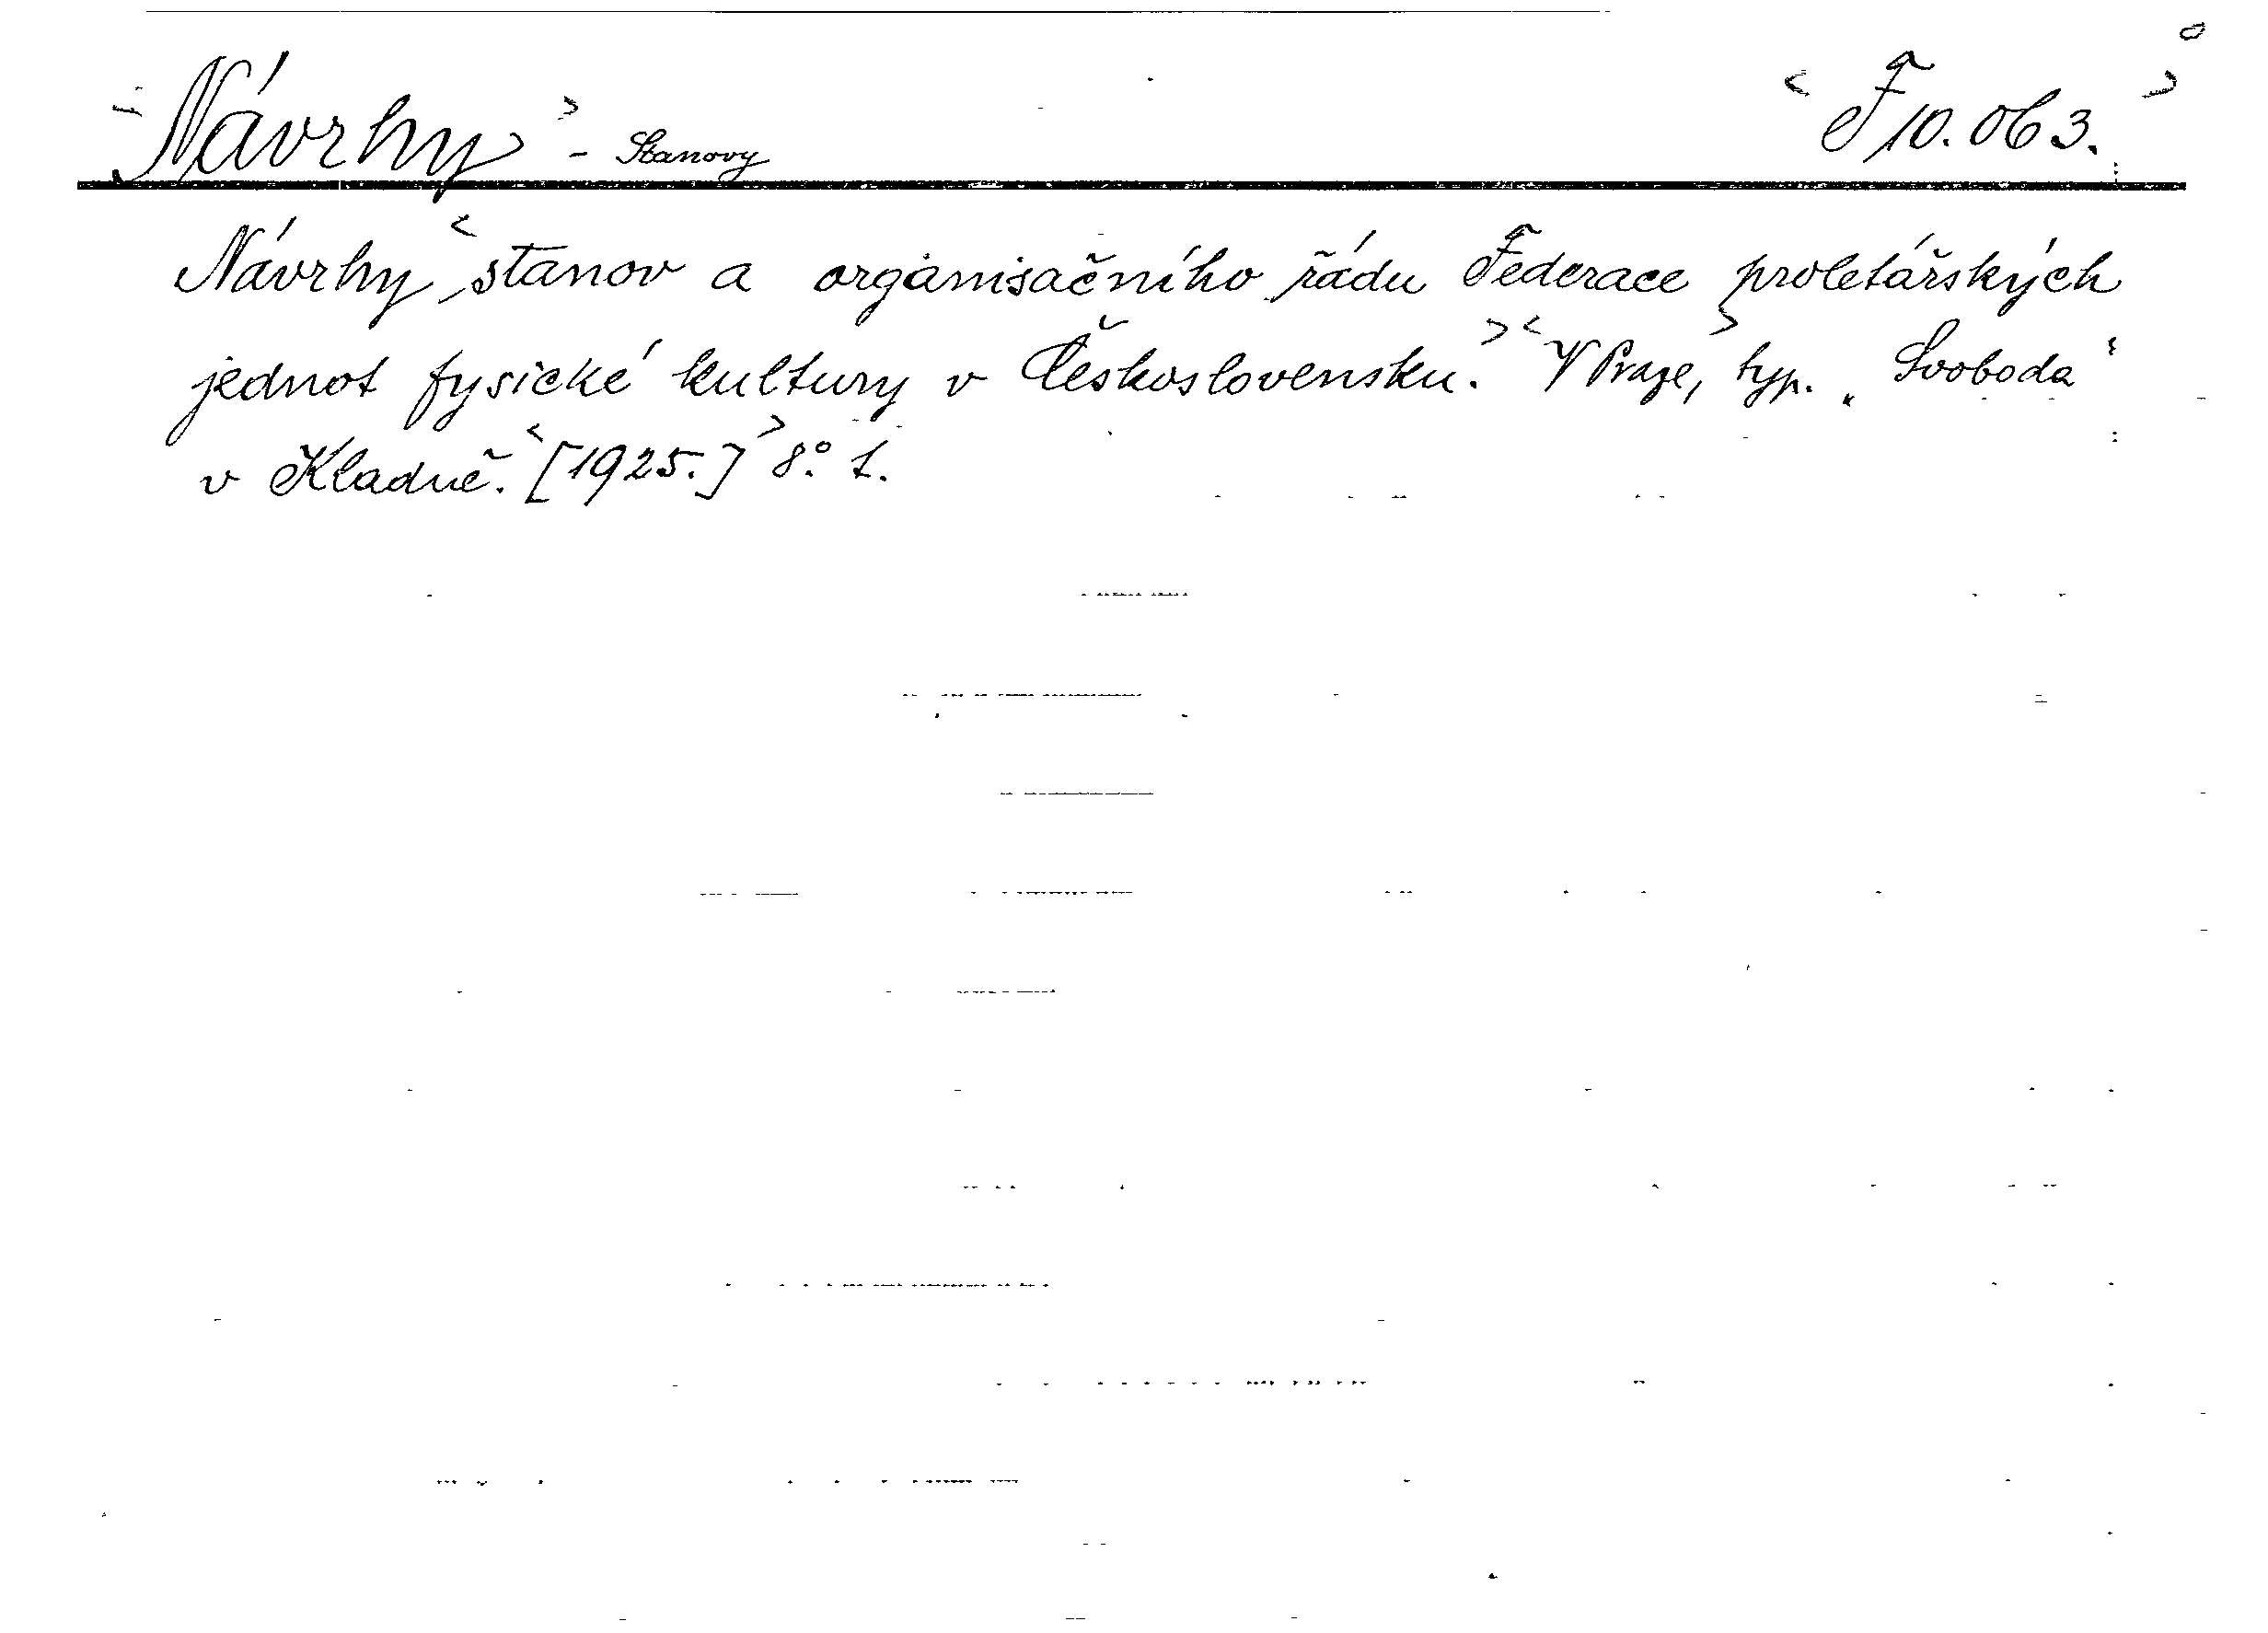 Návrhy - Stanovy F 10.063.
Návrhy stanov a organisačního řádu Federace proletářských
jednot fysické kultury v Československu. V Praze, typ. „Svoboda“
v Kladně. [1925.] 8° 1.